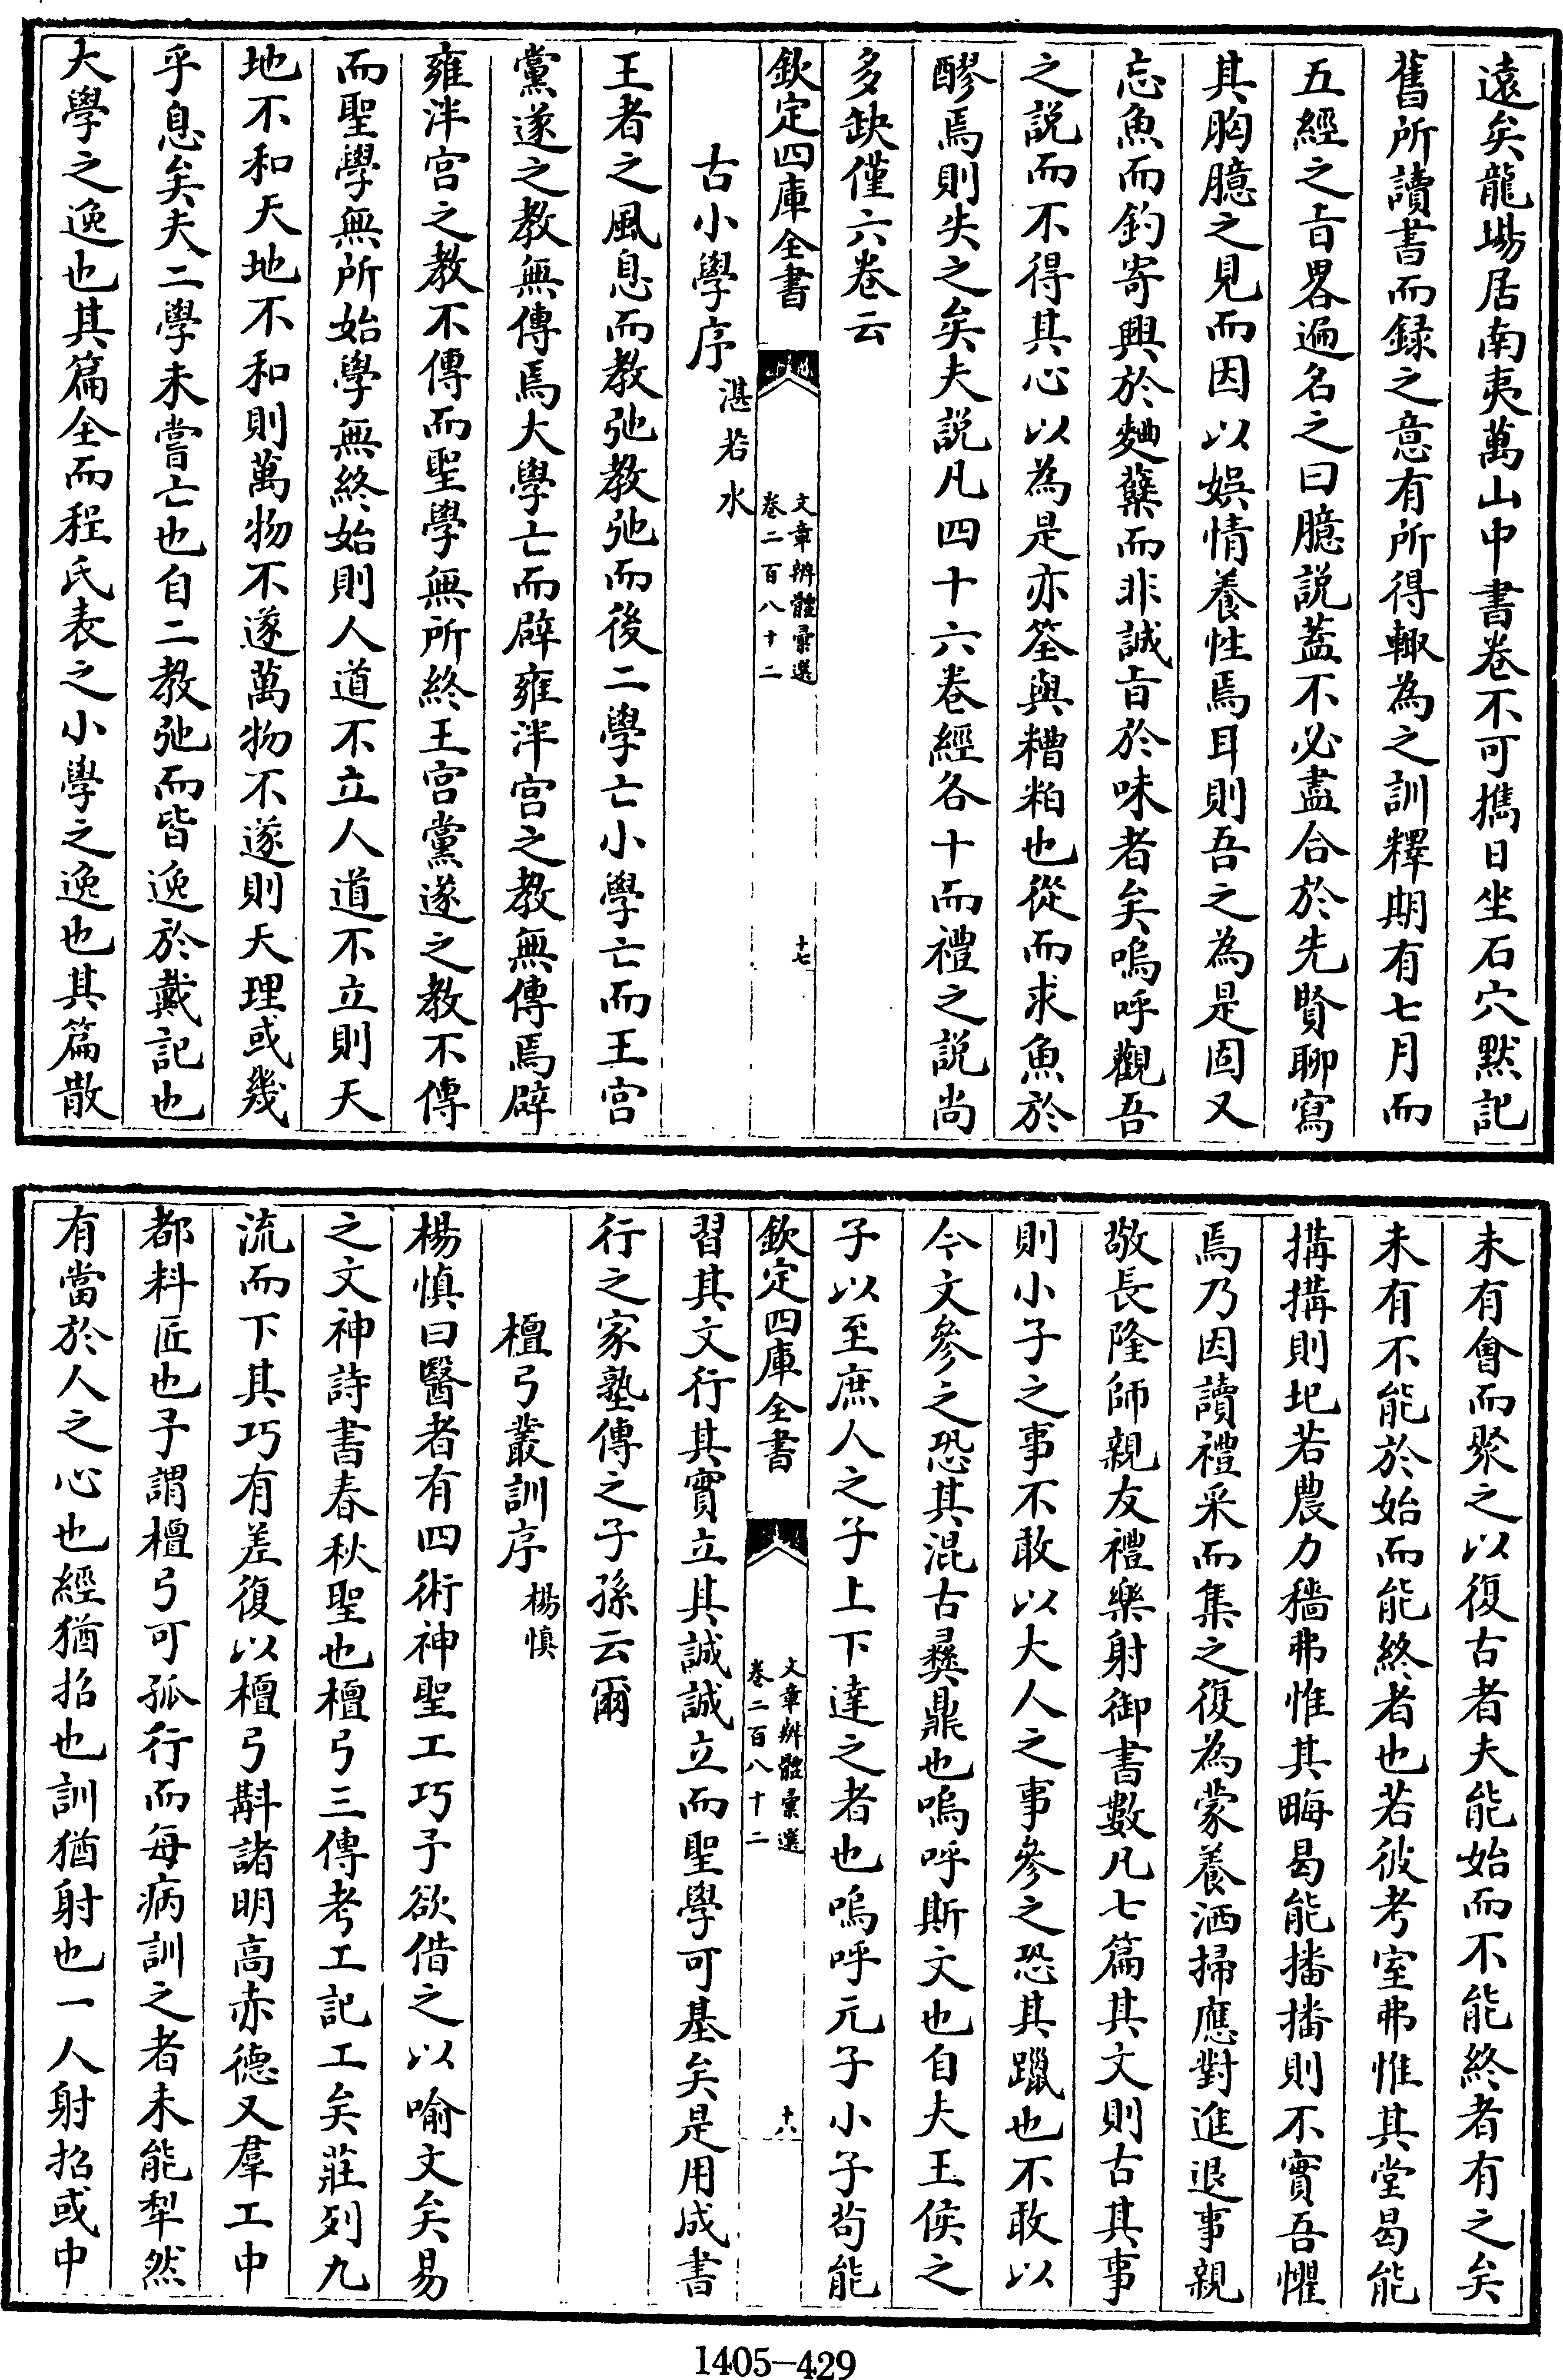 遠矣龍場居南夷萬山中書卷不可攜日坐石穴默記
舊所讀書而録之意有所得輙為之訓釋期有七月而
五經之㫖畧遍名之曰臆説葢不必盡合於先賢聊寫
其胸臆之見而因以娯情養性焉耳則吾之為是固又
忘魚而釣寄興於麯蘖而非誠㫖於味者矣嗚呼觀吾
之説而不得其心以為是亦筌與糟粕也從而求魚於
醪焉則失之矣夫説凡四十六卷經各十而禮之説尚
多缺僅六卷云
欽定四庫全書
文章辨體彙選
卷二百八十二
十七
古小學序
湛若水
王者之風息而教弛教弛而後二學亡小學亡而王宫
黨遂之教無傳焉大學亡而辟雍泮宫之教無傳焉辟
雍泮宫之教不傳而聖學無所終王宫黨遂之教不傳
而聖學無所始學無終始則人道不立人道不立則天
地不和天地不和則萬物不遂萬物不遂則天理或幾
乎息矣夫二學未嘗亡也自二教弛而皆逸於戴記也
大學之逸也其篇全而程氏表之小學之逸也其篇散
未有會而聚之以復古者夫能始而不能終者有之矣
未有不能於始而能終者也若彼考室弗惟其堂曷能
搆搆則圮若農力穡弗惟其畮曷能播播則不實吾懼
焉乃因讀禮采而集之復為蒙養洒掃應對進退事親
敬長隆師親友禮樂射御書數凡七篇其文則古其事
則小子之事不敢以大人之事參之恐其躐也不敢以
今文參之恐其混古彞鼎也嗚呼斯文也自夫王侯之
子以至庶人之子上下達之者也嗚呼元子小子茍能
欽定四庫全書
文章辨體彙選
卷二百八十二
十八
習其文行其實立其誠誠立而聖學可基矣是用成書
行之家塾傳之子孫云爾
檀弓叢訓序
楊慎
楊慎曰醫者有四術神聖工巧予欲借之以喻文矣易
之文神詩書春秋聖也檀弓三傳考工記工矣莊列九
流而下其巧有差復以檀弓斠諸明高赤德又羣工中
都料匠也予謂檀弓可孤行而每病訓之者未能犁然
有當於人之心也經猶招也訓猶射也一人射招或中
1405-429